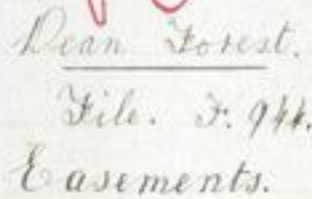 Dean Forest.
File. F. 944.
Easements.